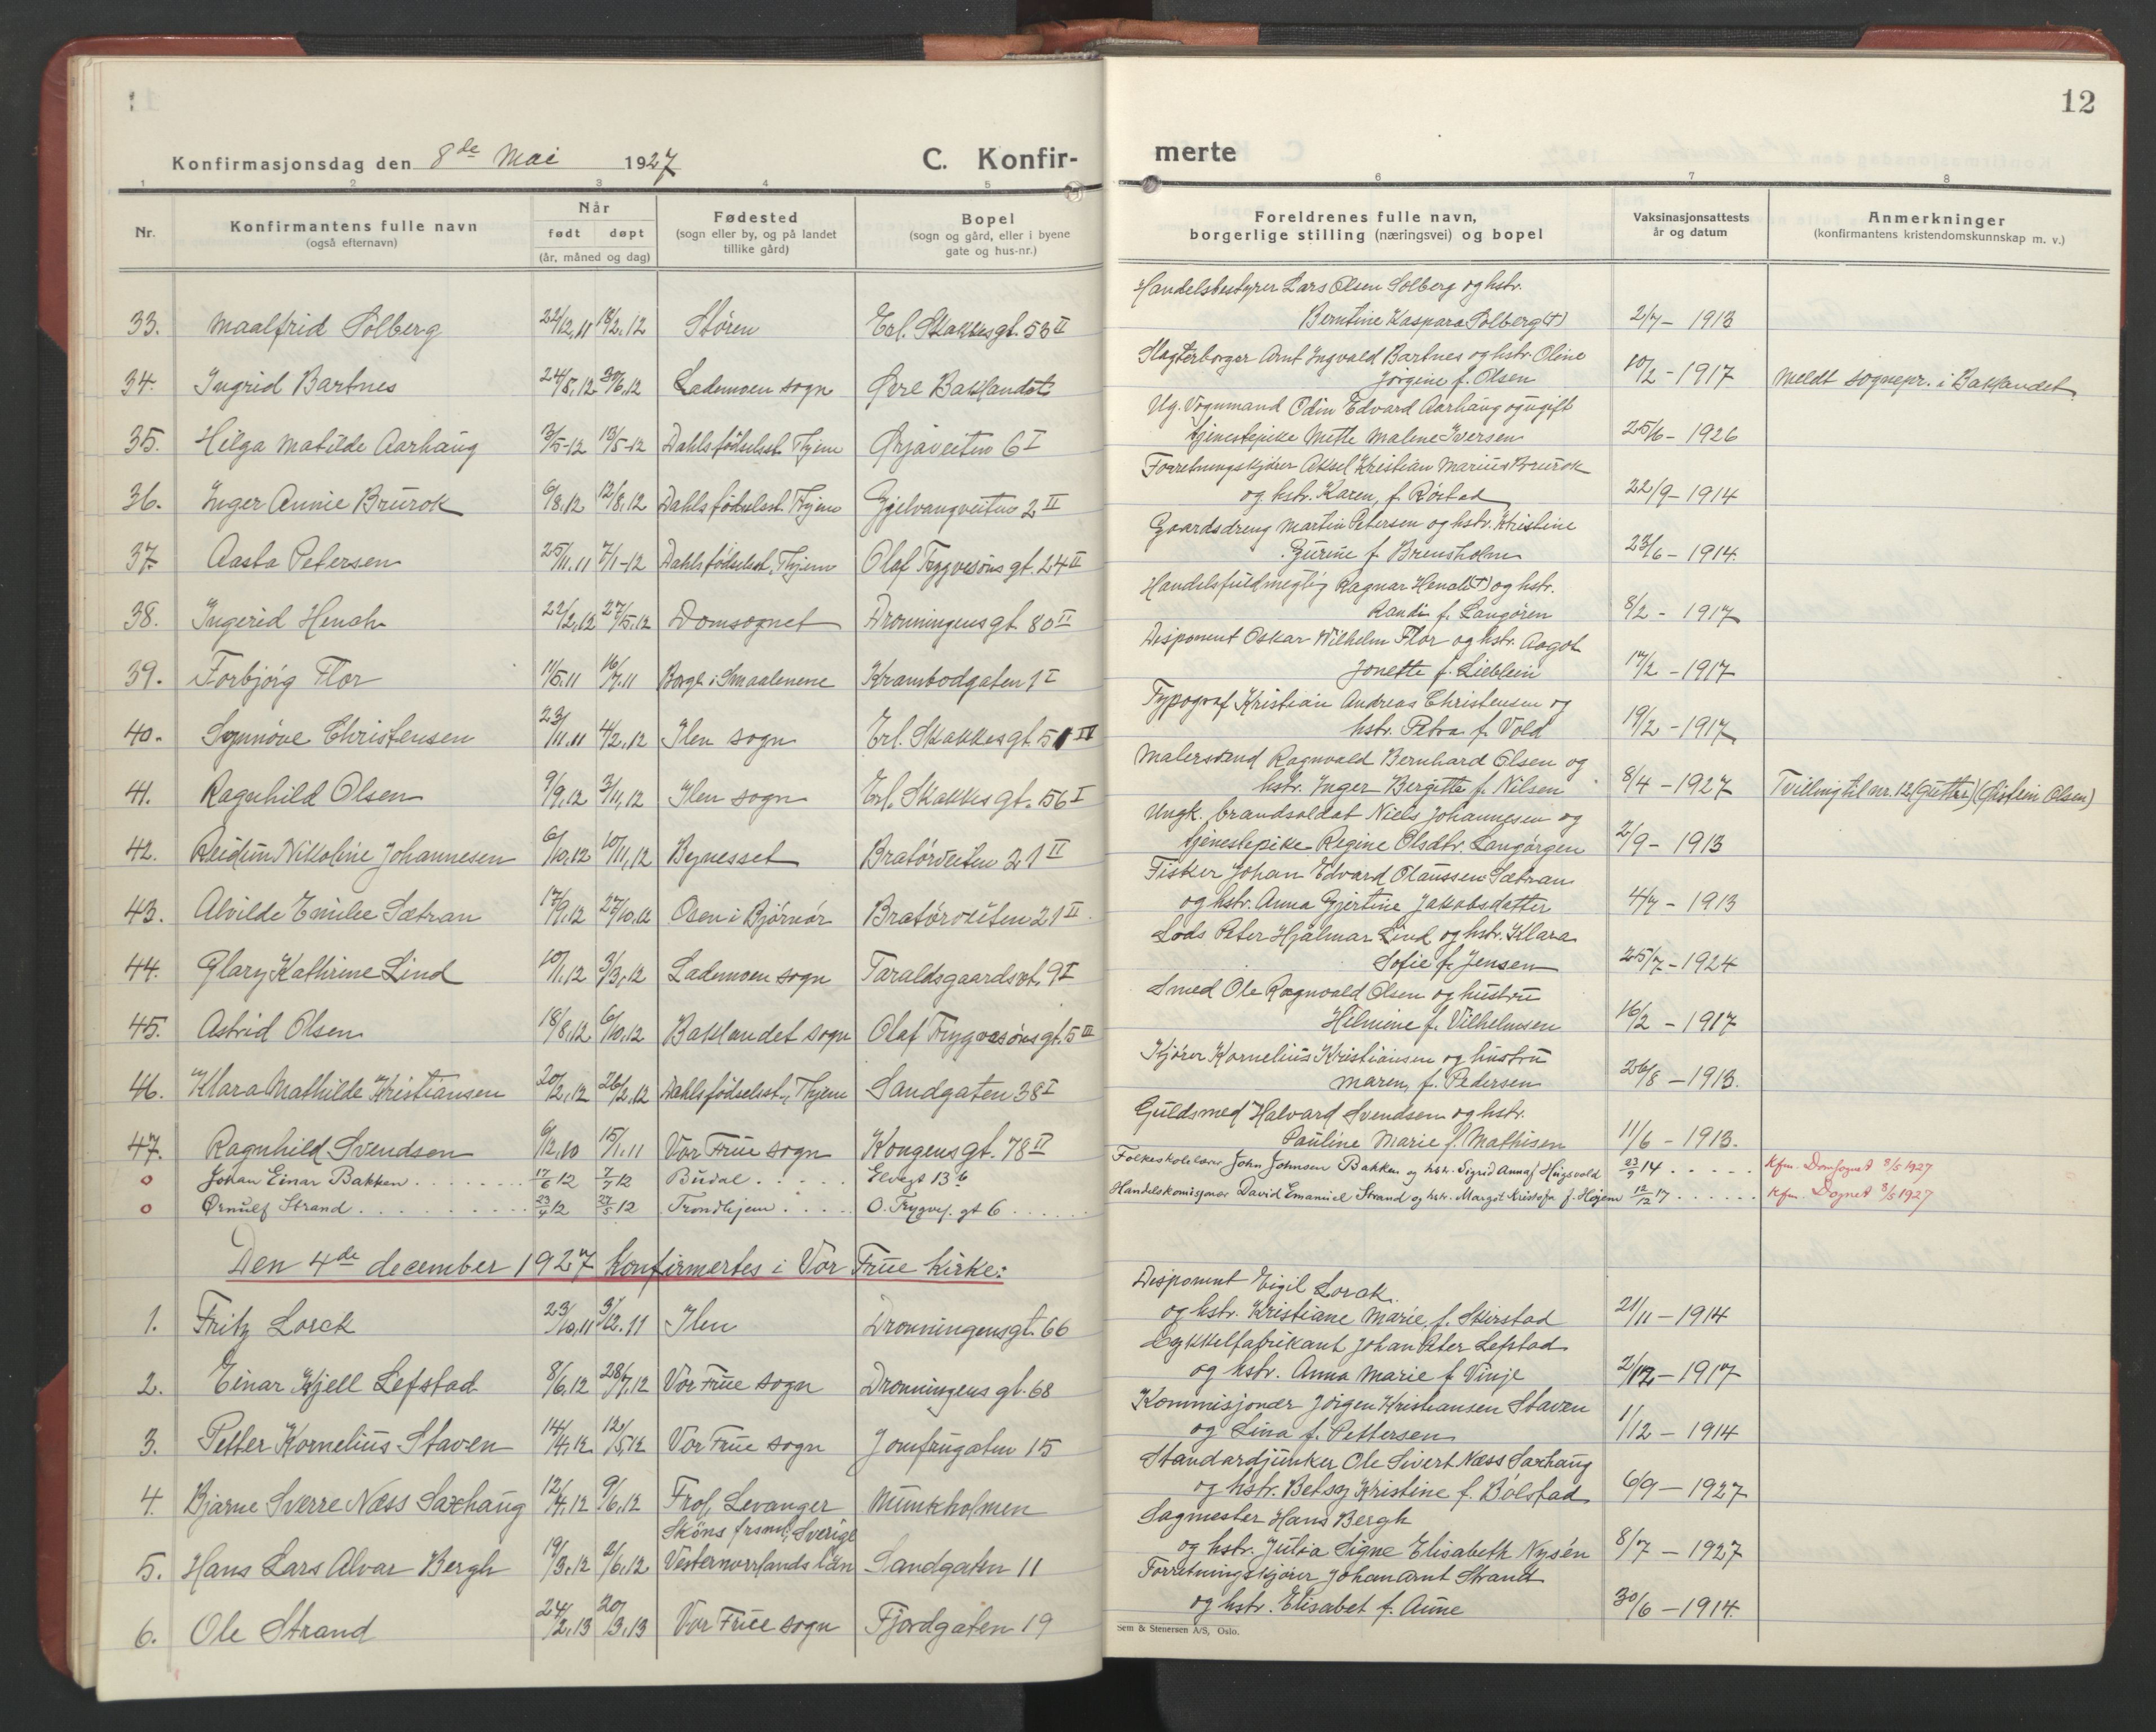 12
Konfirmasjonsdag den 8de Mai 1927 C. Konfirmerte
1 2 3 4 5 6 7 8
Nr. Konfirmantens fulle navn (også efternavn) Når født døpt (år, måned og dag) Fødested (sogn eller by, og på landet tillike gård) Bopel (sogn og gård, eller i byene gate og hus-nr.) Foreldrenes fulle navn, borgerlige stilling (næringsvei) og bopel Vaksinasjonsattests år og datum Anmerkninger (konfirmantens kristendomskunnskap m. v.)
Handelsbestyrer Lars Olsen Solberg og hstr.
33. Maalfrid Solberg 22/12,11 18/2,12 Støren Erl. Skakkesgt. 53 II Berntine Kaspara Solberg (†) 2/7 - 1913
Slagterborger Arnt Ingvald Bartnes og hstr. Oline
34. Ingrid Bartnes 24/8,12 Lademoen sogn Øvre Baklandet Jørgine f. Olsen 10/2 - 1917 Meldt sognepr. i Baklandet
Ug. Vognmand Odin Edvard Aarhaug og ugift
35. Helga Matilde Aarhaug 3/5-12 13/5-12 Dahls fødselsst. Thjem Ørjaveiten 6 I tjenestepike Mette Malene Iversen 25/6 - 1926
Forretningskjører Aksel Kristian Marius Brurok
36. Inger Annie Brurok 6/8,12 12/8,12 Dahls fødselsst. Thjem Gjelvangveiten 2 II og hstr. Karen, f. Røstad 22/9 - 1914
Gaardsdreng Martin Petersen og hstr. Kristine
37. Aasta Petersen 25/11,11 7/1-12 Dahls fødselsst. Thjem Olaf Trygvesøns gt. 24 II Gurine f. Brensholm 23/6 - 1914.
Handelsfuldmegtig Ragnar Henoch (†) og hstr.
38. Ingerid Henoch 22/2,12 27/5,12 Domsognet Dronningensgt. 80 II Randi f. Langøren 8/2 - 1917
Disponent Oskar Wilhelm Flor og hstr. Aagot
39. Torbjørg Flor 11/5,11 16/7,11 Borge i Smaalenene Krambodgaten 1 I Jonette f. Lieblein 17/2 - 1917
Typograf Kristian Andreas Christensen og
40. Synnøve Christensen 23/11,11 4/2,12 Ilen sogn Erl. Skakkesgt. 51 IV hstr. Petra f. Vold 19/2 - 1917
Malersvend Ragnvald Bernhard Olsen og
41. Ragnhild Olsen 9/9,12 3/11,12 Ilen sogn Erl. Skakkes gt. 56 I hstr. Inger Bergitte f. Nilsen 8/4 - 1927 Tvilling til nr. 12 (Gutter) (Øistein Olsen)
Ungk. brandsoldat Niels Johannesen og
42. Reidun Nikoline Johannesen 6/10,12 10/11,12 Bynesset Bratørveiten 21 II tjenestepike Regine Olsdtr. Langørgen 2/9 - 1913
Fisker Johan Edvard Olaussen Sætran
43. Alvilde Emilie Sætran 17/9,12 27/10,12 Osen i Bjørnør Bratørveiten 21 II og hstr. Anna Gjertine Jakobsdatter 4/7 - 1913
Lods Peter Hjalmar Lind og hstr. Klara
44. Glary Kathrine Lind 10/1,12 3/3,12 Lademoen sogn Taraldsgaardsvt. 9 I Sofie f. Jensen 25/7 - 1924
Smed Ole Ragnvald Olsen og hustru
45. Astrid Olsen 18/8,12 6/10,12 Baklandet sogn Olaf Trygvesønsgt. 5 III Helmine f. Vilhelmsen 16/2 - 1917
Kjører Kornelius Kristiansen og hustru
46. Klara Mathilde Kristiansen 20/2,12 26/2,12 Dahls fødselsst., Thjem Sandgaten 38 I Maren, f. Pedersen 26/8 - 1913.
Guldsmed Halvard Svendsen og hstr.
47. Ragnhild Svendsen 6/12,10 15/1,11 Vor Frue sogn Kongensgt. 78 II Pauline Marie f. Mathisen 11/6 - 1913.
o Johan Einar Bakken 17/6 12 7/7 12 Budal Elvegt 13 b Folkeskolelærer John Johnsen Bakken og hstr. Sigrid Anna f. Hugsvold 23/9 14 kfm. Domsognet 8/5 1927
o Ørnulf Strand 23/4 12 27/5 12 Trondhjem O. Trygvef. gt 6 Handelskomisjonær David Emanuel Strand og hstr. Margot Kristofa f. Højem 12/12 17 kfm. Dognet 8/5 1927
Den 4de december 1927 konfirmertes i Vor Frue kirke:
Disponent Eigil Lorck
1. Fritz Lorck 23/10,11 3/12,11 Ilen Dronningensgt. 66 og hstr. Kristiane Marie, f. Skirstad 21/11 - 1914
Lykkelfabrikant Johan Peter Lefstad
2. Einar Kjell Lefstad 8/6,12 28/7,12 Vor Frue sogn Dronningens gt. 68 og hstr. Anna Marie f. Vinje 2/12 - 1917
Kommisjonær Jørgen Kristiansen Staven
3. Petter Kornelius Staven 14/4,12 12/5,12 Vor Frue sogn Jomfrugaten 15 og Lina f. Pettersen 1/12 - 1914
Standardjunker Ole Sivert Næss Saxhaug
4. Bjarne Sverre Næss Saxhaug 12/4,12 9/6,12 Frol, Levanger Munkholmen og hstr. Betsy Kristine f. Bølstad 6/9 - 1927
Sköns frsml., Sverige Sagmester Hans Bergh
5. Hans Lars Alvar Bergh 19/3,12 2/6,12 Vesternorrlands län Sandgaten 11 og hstr. Julia Signe Elisabeth Nysén 8/7 - 1927
Forretningskjører Johan Arnt Strand
6. Ole Strand 24/2,13 20/3,13 Vor Frue sogn Fjordgaten 19 og hstr. Elisabet f. Aune 30/6 - 1914.
Sem & Stenersen A/S, Oslo.